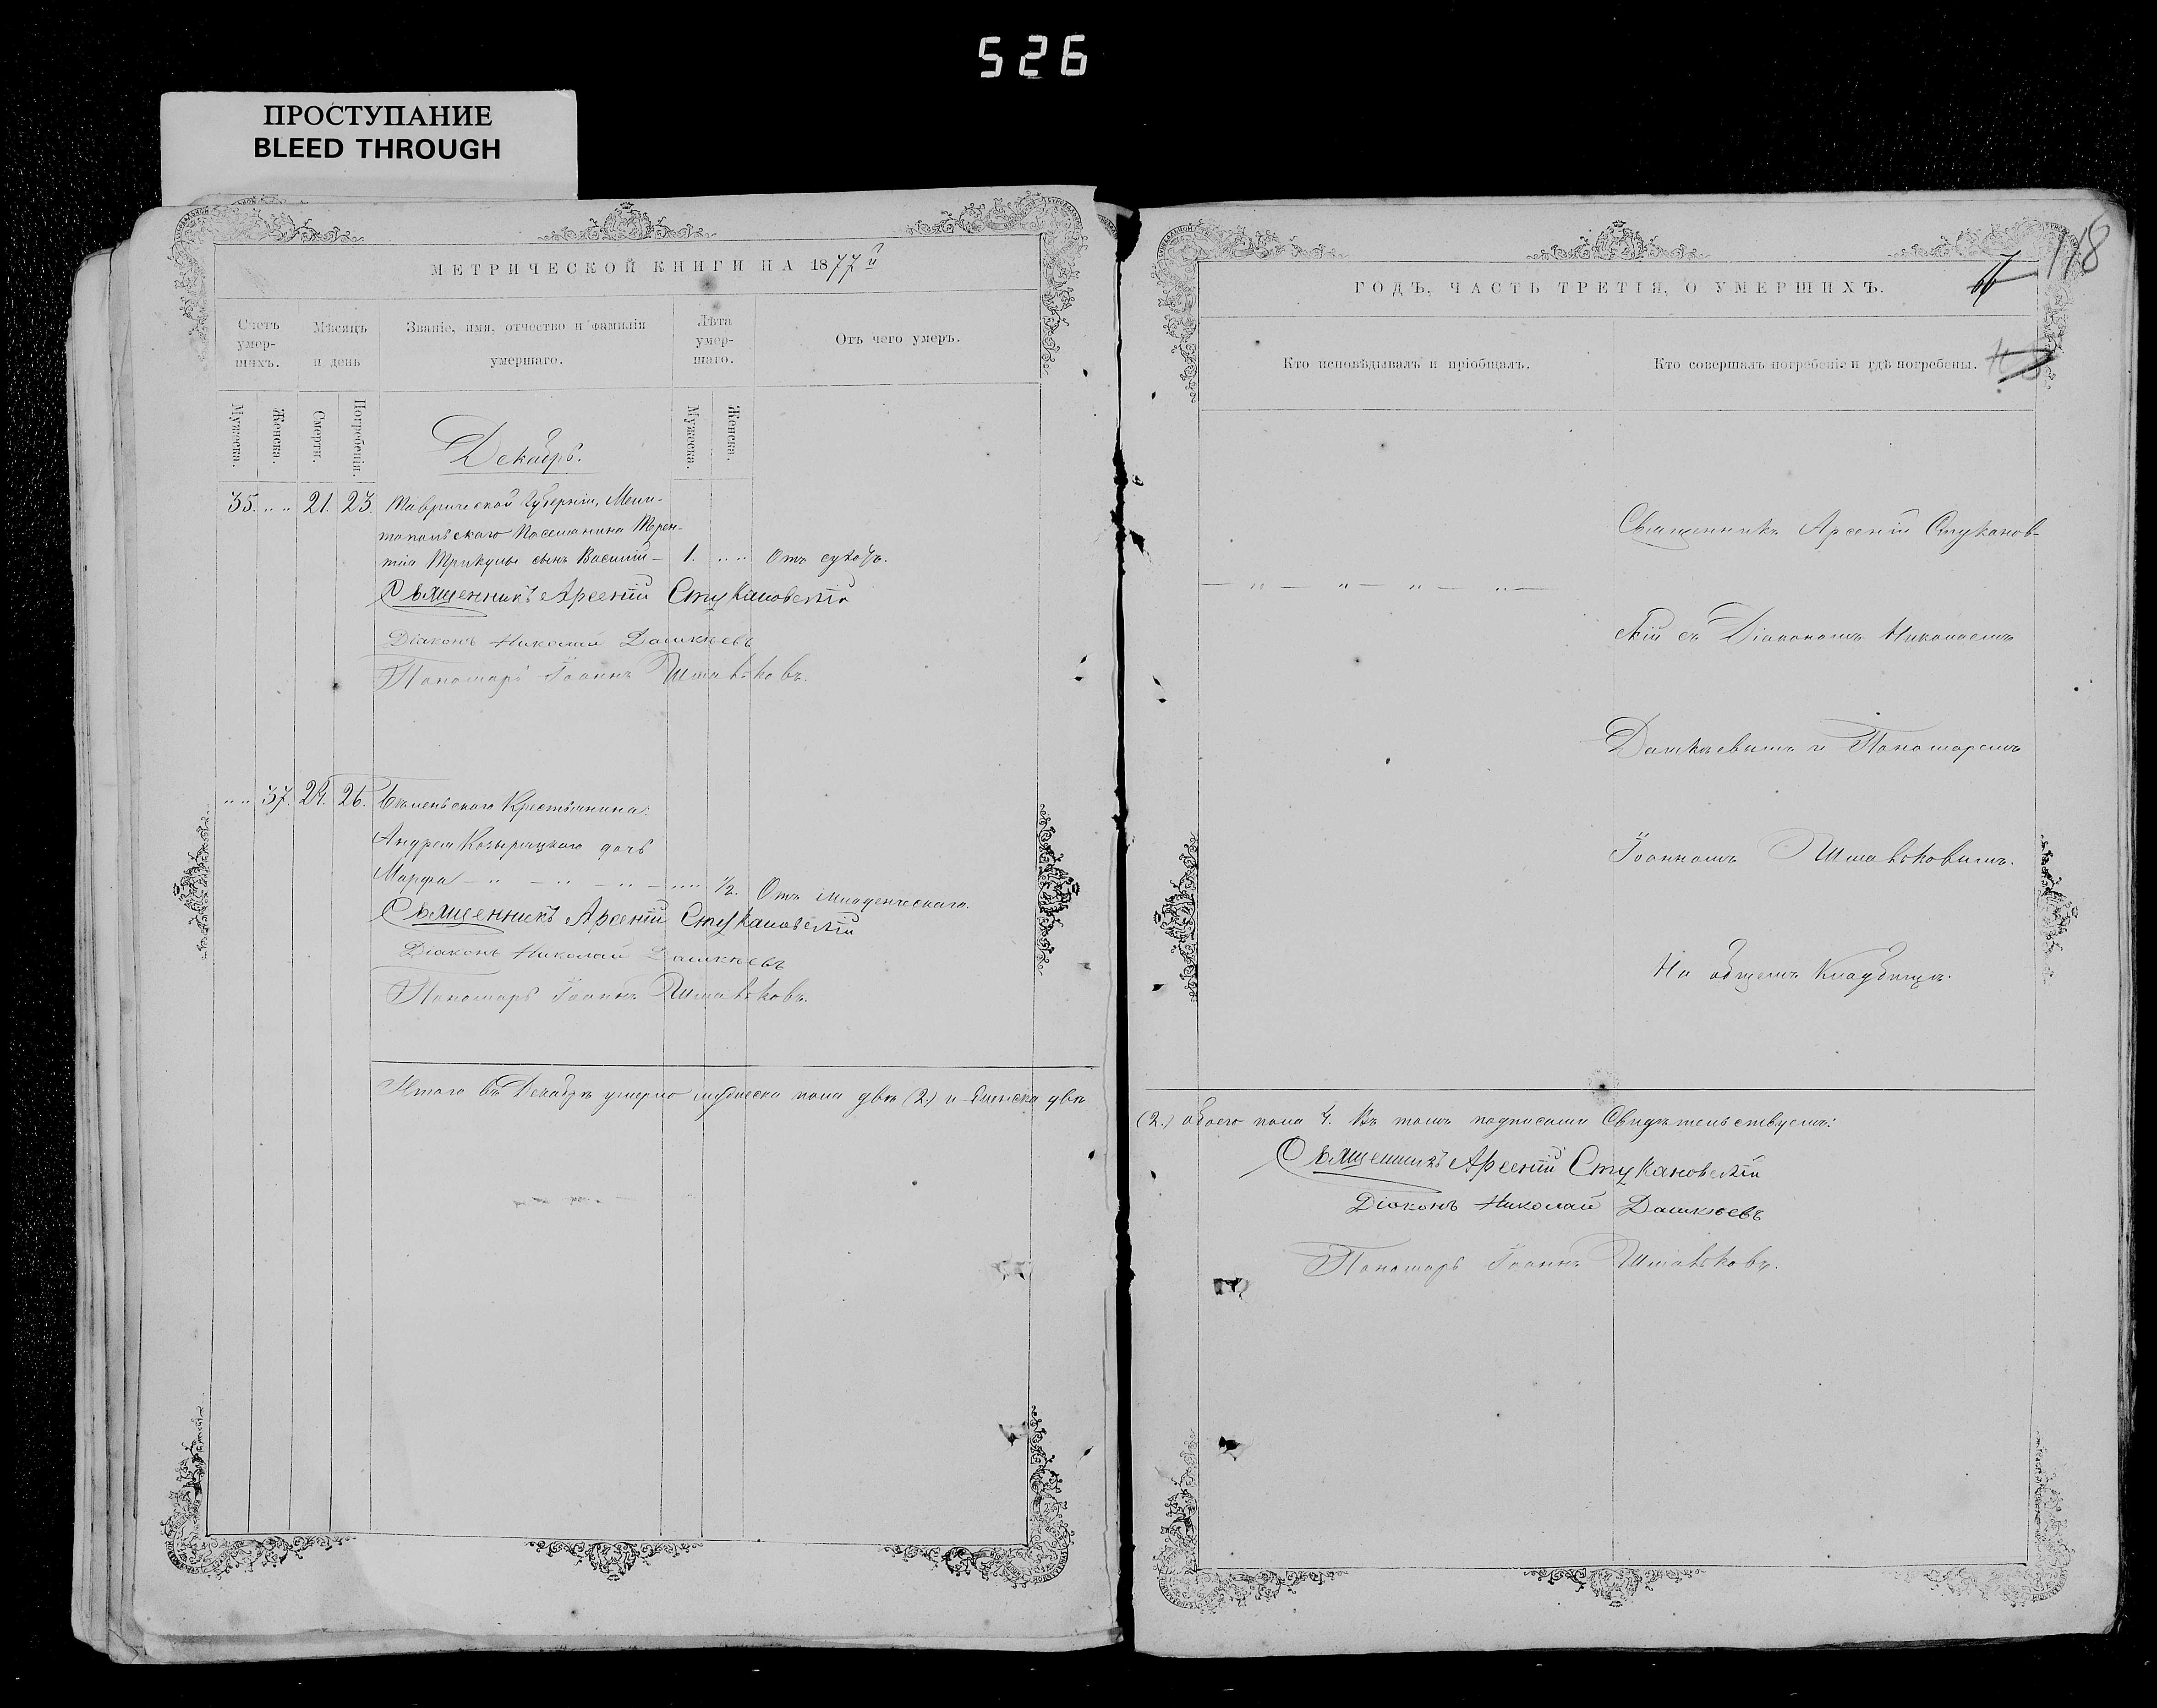 526
ПРОСТУПАНИЕ
BLEED THROUGH
МЕТРИЧЕСКОЙ КНИГИ НА 1877й
Счетъ умер-шихъ.
Мѣсяцъ и день
Званіе, имя, отчество и фамилія умершаго.
Лѣта умер-шаго.
Отъ чего умеръ.
Мужеска.
Женска.
Смерти.
Погребенія.
Мужеска.
Женска.
Декабрь.
35. 21. 23. Таврической Губерніи, Мели-
топольскаго Поселянина Терен-
тія Трикулы сынъ Василій 1. Отъ сухотъ.
Священникъ Арсеній Стукановскій
Діаконъ Николай Дашкѣевъ
Пономарь Іоаннъ
37. 24. 26. Крестьянина
Андрея дочь
Марѳа 1/2. Отъ младенческаго.
Священникъ Арсеній Стукановскій
Діаконъ Николай Дашкѣевъ
Пономарь Іоаннъ
Итого въ Декабрѣ умерло мужеска пола два (2.) и женска двѣ
118
ГОДЪ, ЧАСТЬ ТРЕТІЯ, О УМЕРШИХЪ.
Кто исповѣдывалъ и пріобщалъ.
Кто совершалъ погребеніе и гдѣ погребены.
Священникъ Арсеній Стуканов-
скій съ Діакономъ Николаемъ
Дашкѣевымъ и Пономаремъ
Іоанномъ
На общемъ Кладбищѣ.
(2.) обоего пола 4. Въ томъ подписами Свидѣтельствуемъ:
Священникъ Арсеній Стукановскій
Діаконъ Николай Дашкѣевъ
Пономарь Іоаннъ